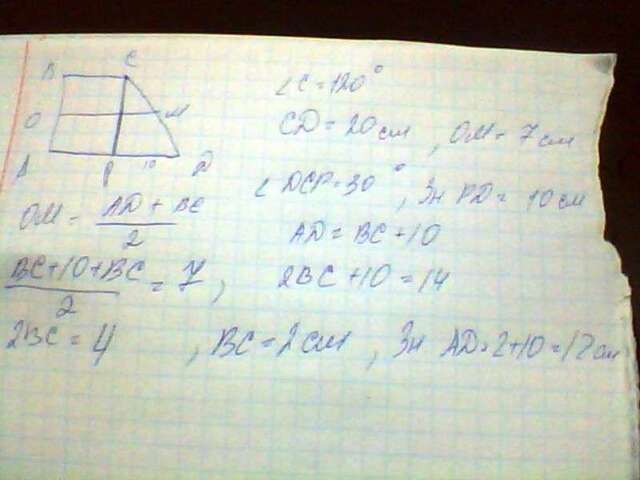 B C
∠C = 120°
O M
CD = 20 см, OM = 7 см
A P 10 D
∠DCP = 30°, Зн PD = 10 см
OM = (AD + BC)/2
AD = BC + 10
(BC + 10 + BC)/2 = 7, 2BC + 10 = 14
2BC = 4, BC = 2 см, Зн AD = 2 + 10 = 12 см